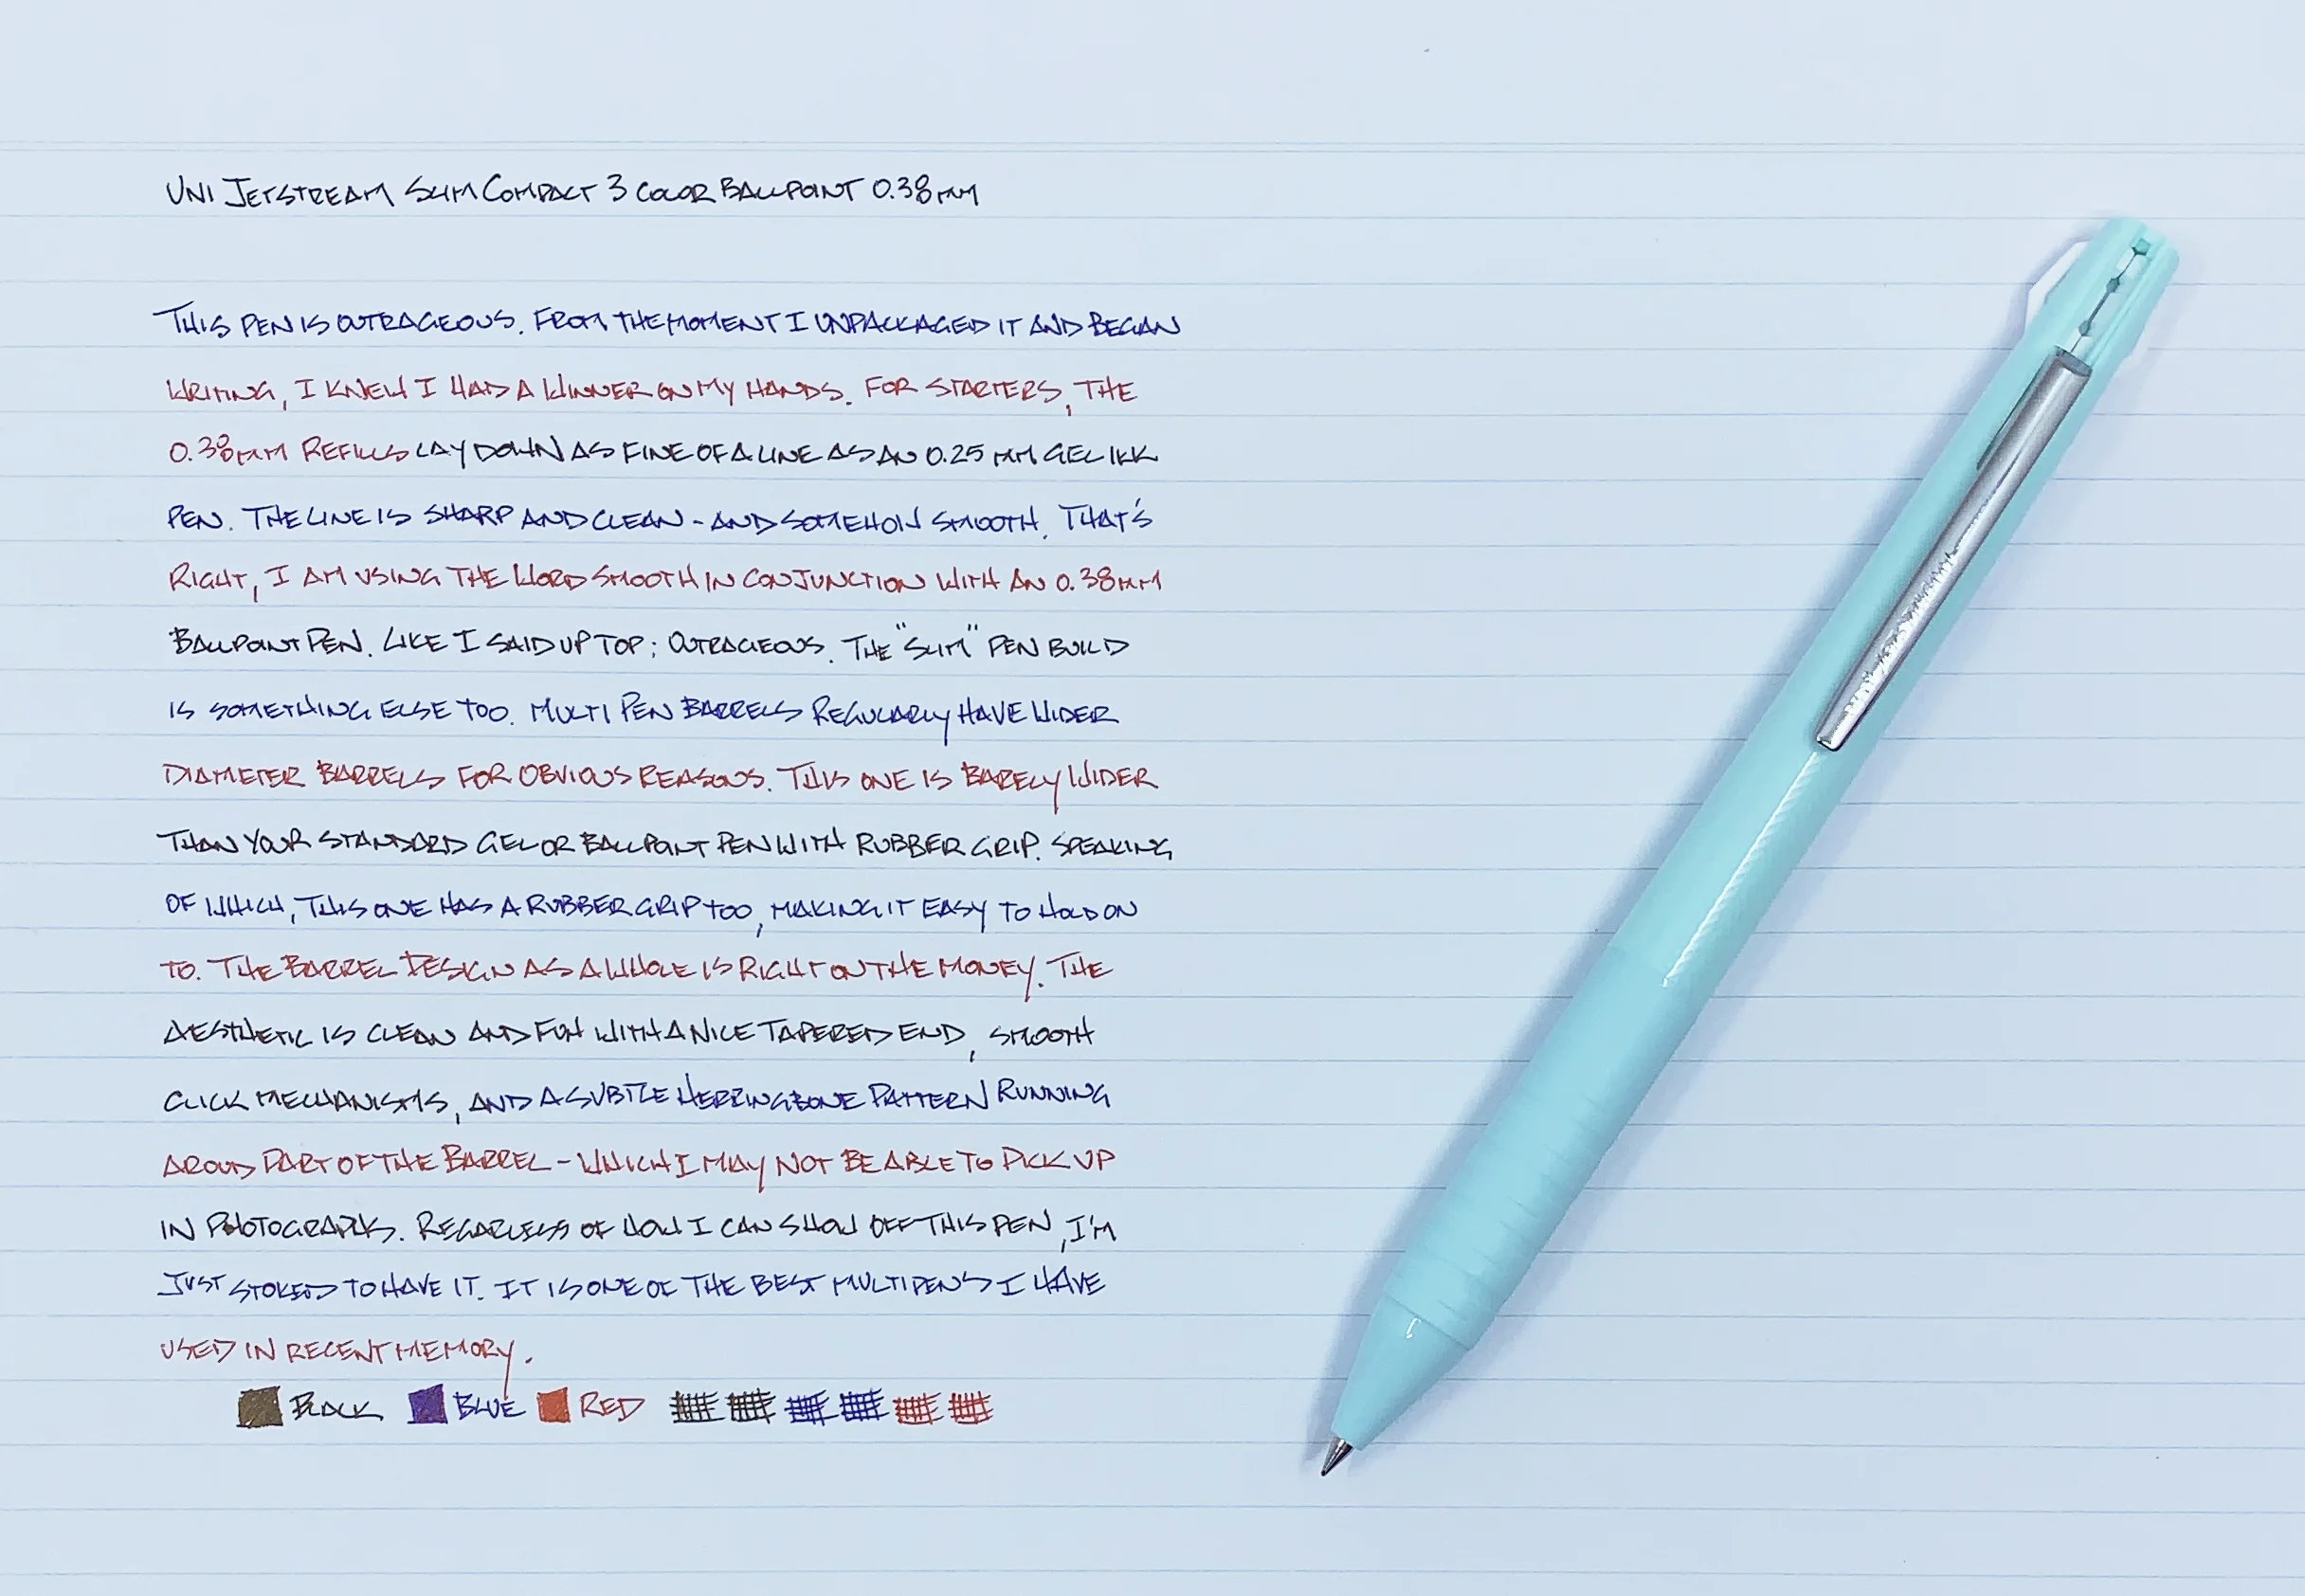 UNI JETSTREAM SLIM COMPACT 3 COLOR BALLPOINT 0.38MM
THIS PEN IS OUTRAGEOUS. FROM THE MOMENT I UNPACKAGED IT AND BEGAN
WRITING, I KNEW I HAD A WINNER ON MY HANDS. FOR STARTERS, THE
0.38MM REFILLS LAY DOWN AS FINE OF A LINE AS AN 0.25 MM GEL INK
PEN. THE LINE IS SHARP AND CLEAN - AND SOMEHOW SMOOTH. THAT'S
RIGHT, I AM USING THE WORD SMOOTH IN CONJUNCTION WITH AN 0.38MM
BALLPOINT PEN. LIKE I SAID UP TOP: OUTRAGEOUS. THE "SLIM" PEN BUILD
IS SOMETHING ELSE TOO. MULTI PEN BARRELS REGULARLY HAVE WIDER
DIAMETER BARRELS FOR OBVIOUS REASONS. THIS ONE IS BARELY WIDER
THAN YOUR STANDARD GEL OR BALLPOINT PEN WITH RUBBER GRIP. SPEAKING
OF WHICH, THIS ONE HAS A RUBBER GRIP TOO, MAKING IT EASY TO HOLD ON
TO. THE BARREL DESIGN AS A WHOLE IS RIGHT ON THE MONEY. THE
AESTHETIC IS CLEAN AND FUN WITH A NICE TAPERED END, SMOOTH
CLICK MECHANISMS, AND A SUBTLE HERRINGBONE PATTERN RUNNING
AROUD PART OF THE BARREL - WHICH I MAY NOT BE ABLE TO PICK UP
IN PHOTOGRAPHS. REGARLESS OF HOW I CAN SHOW OFF THIS PEN, I'M
JUST STOKED TO HAVE IT. IT IS ONE OF THE BEST MULTI PENS I HAVE
USED IN RECENT MEMORY.
BLACK BLUE RED